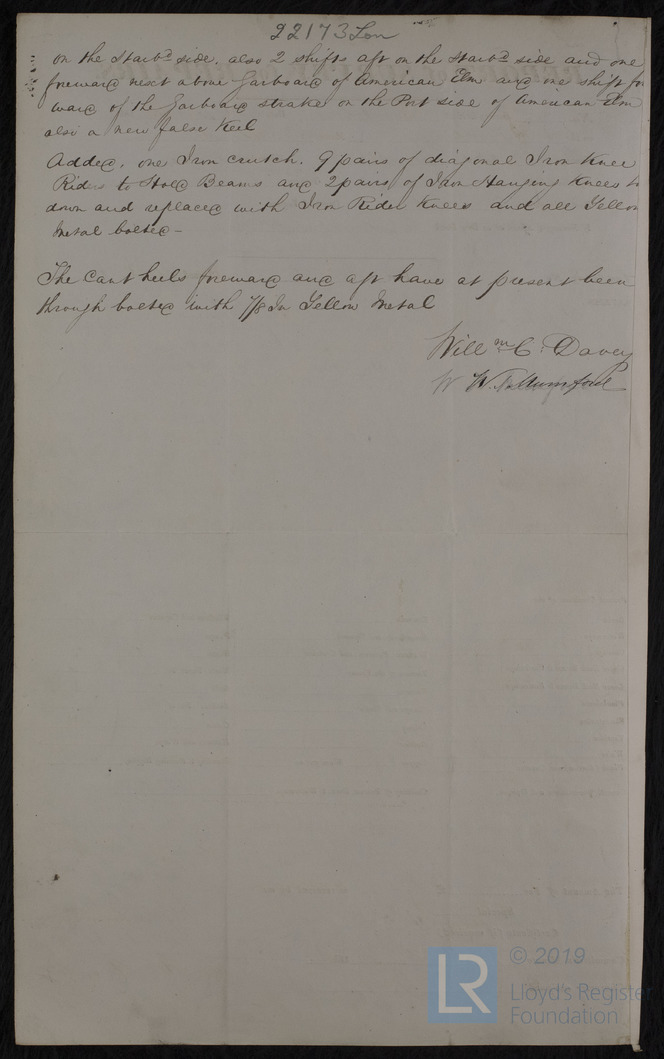 22173 Lon
on the Starbd side. also 2 shifts aft on the Starbd side and one
foreward next above Garboard of American Elm and one shift for
ward of the Garboard strake on the Port side of American Elm
also a new false Keel
Added. one Iron crutch. 9 pairs of diagonal Iron Knee
Riders to Hold Beams and 2 pairs of Iron Hanging Knees
down and replaced with Iron Rider Knees and all Yellow
Metal bolted -
The Cant heels foreward and aft have at present been
through bolted with 7/8 In Yellow Metal
Willm C. Davey
W.
© 2019
LR
Lloyd's Register
Foundation